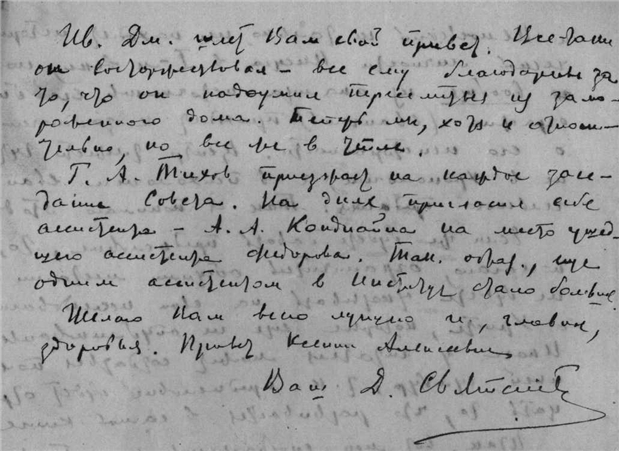 Ив. Дм. шлет Вам свой привет. Все-таки
он восторжествовал – все ему благодарны за
то, что он надоумил переехать из замо-
роженного дома. Теперь мы, хотя и относи-
тельно, но все же в тепле.
Г. А. Тихов приезжает на каждое засе-
дание Совета. На днях пригласил себе
ассистента – А. А. Кондратьева на место ушед-
шего ассистента Федорова. Так. образ., еще
одним ассистентом в Институте стало больше.
Желаю Вам всего лучшего и, главное,
здоровья. Привет Ксении Алексеевне
Ваш Д. Святский